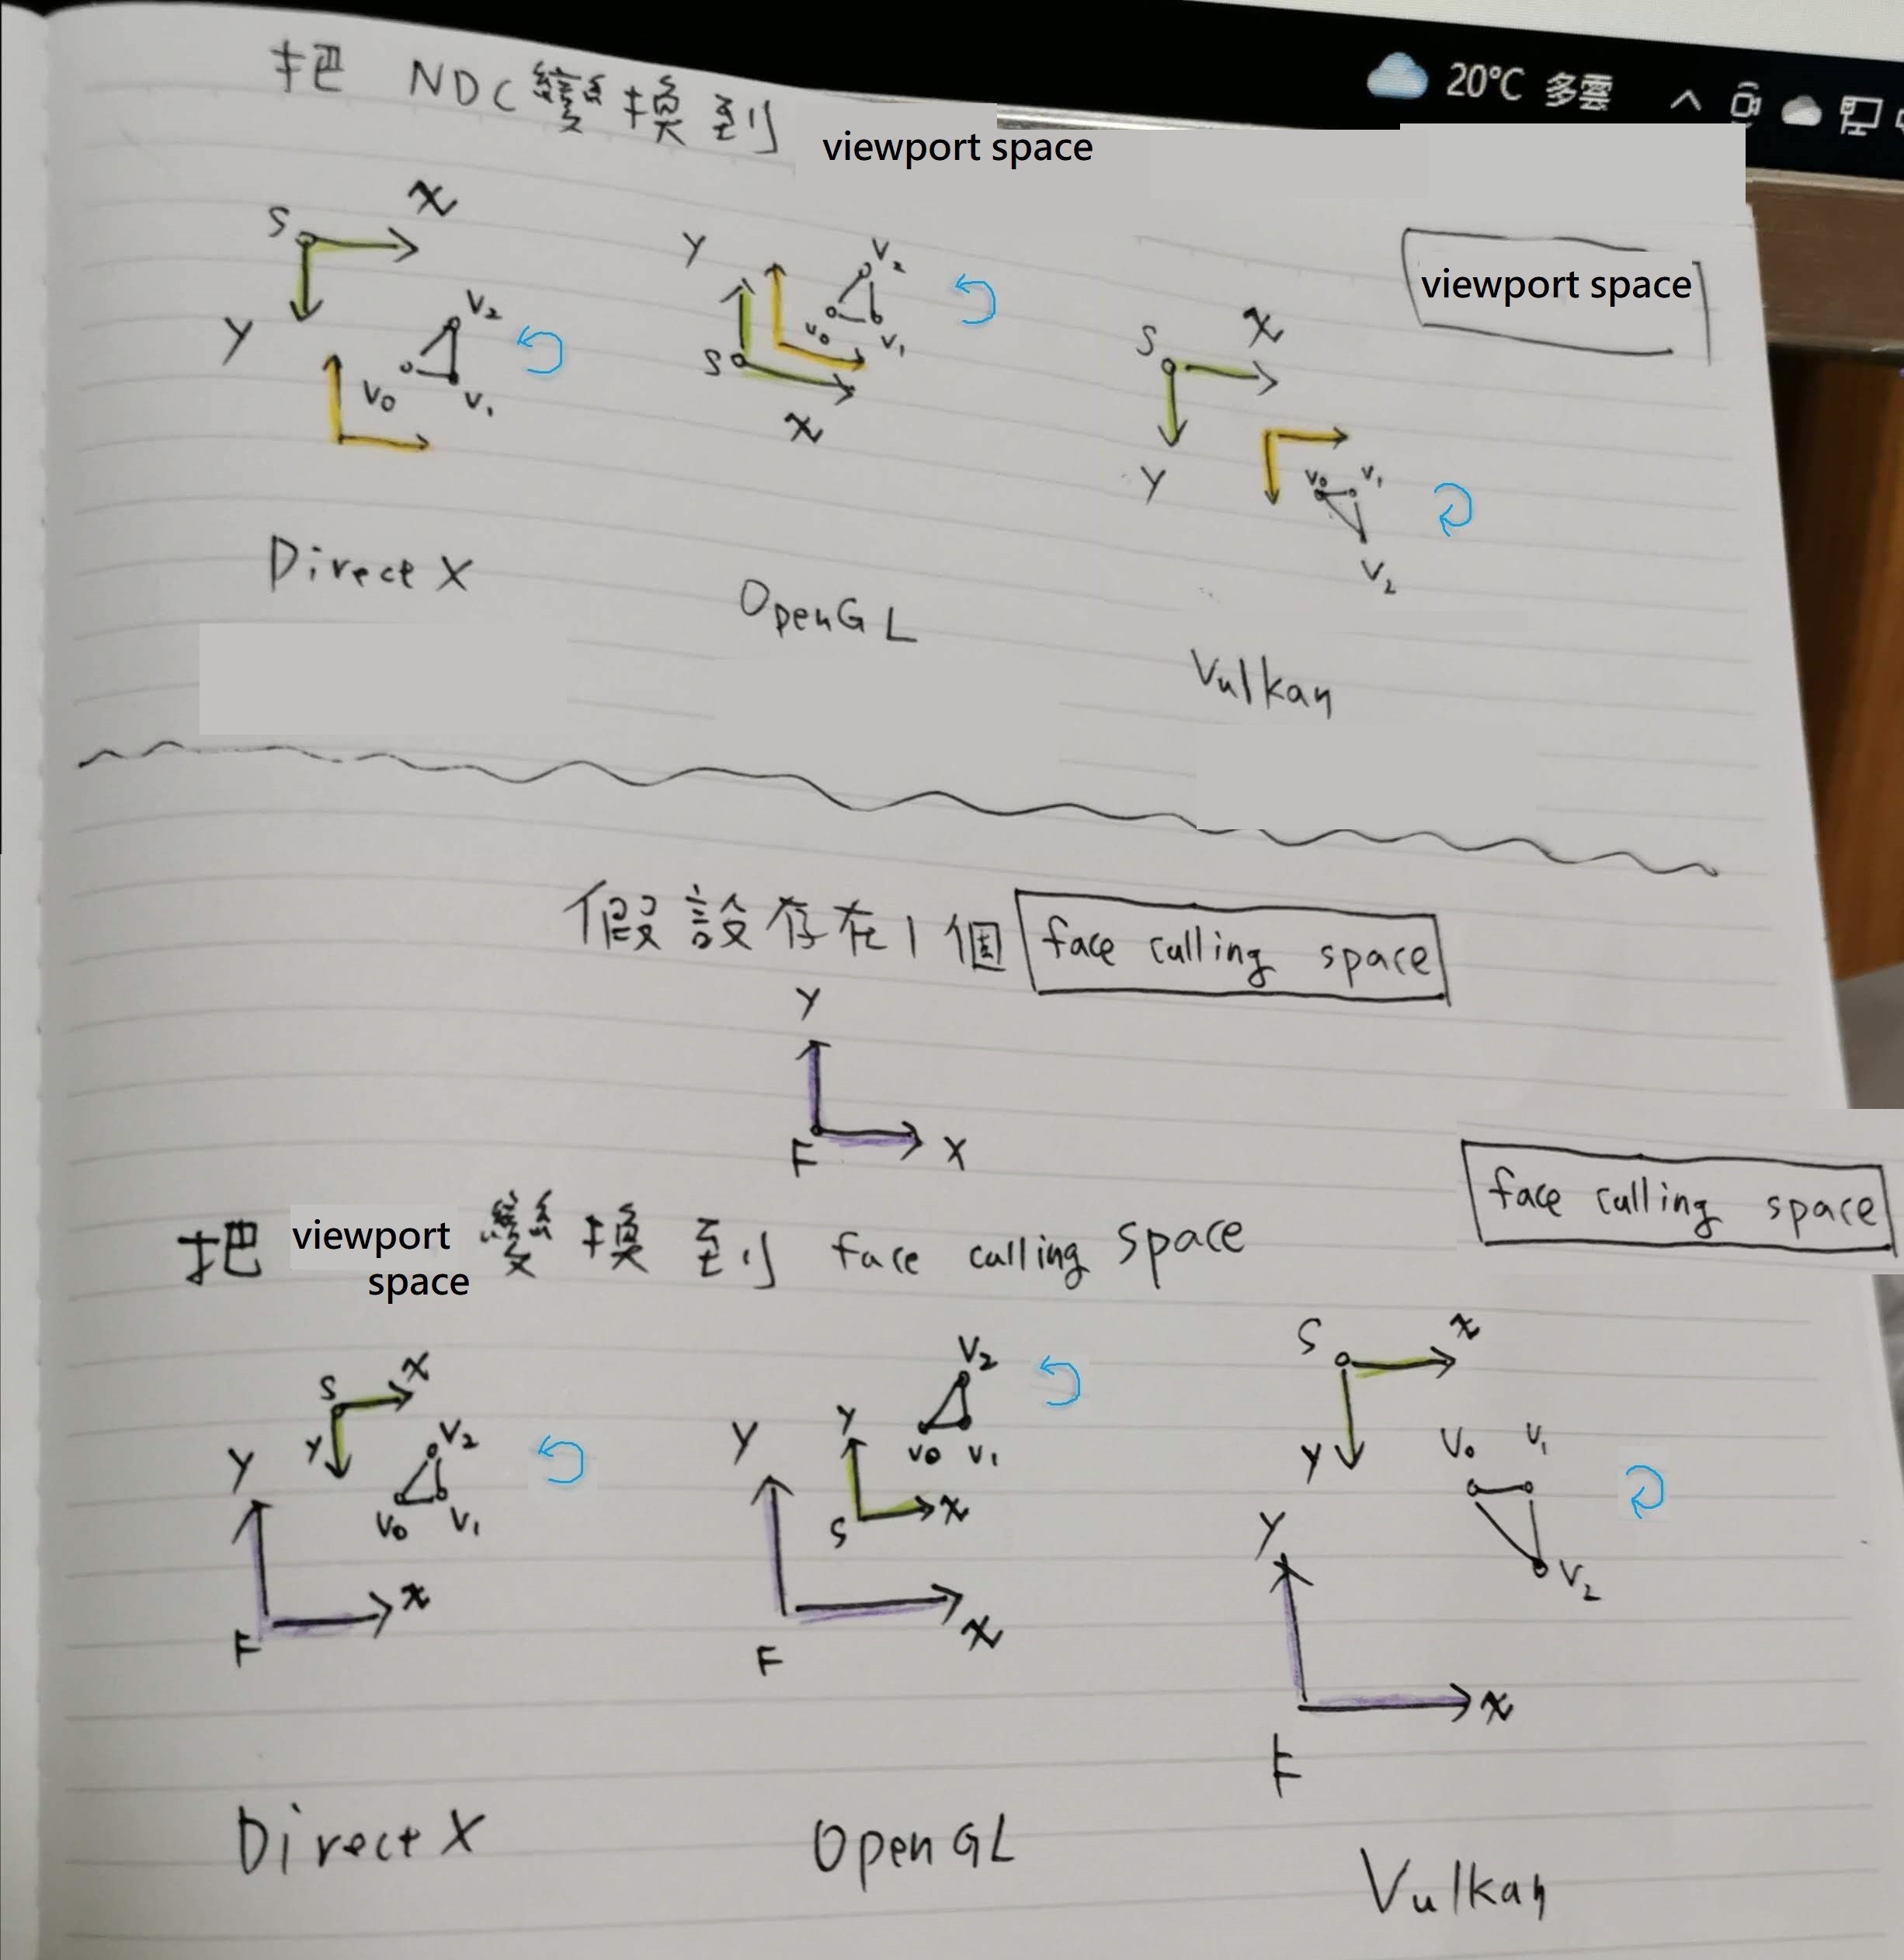 20°C 多雲
把 NDC 變換到 viewport space
viewport space
S X Y V2 V0 V1
Y V2 V0 V1 S X
S X Y V0 V1 V2
DirectX
OpenGL
Vulkan
假設存在1個 face culling space
Y
F X
face culling space
把 viewport space 變換到 face culling space
S X Y V2 V0 V1 Y X F
V2 Y V0 V1 S X Y X F
S X Y V0 V1 V2 Y X F
DirectX
OpenGL
Vulkan